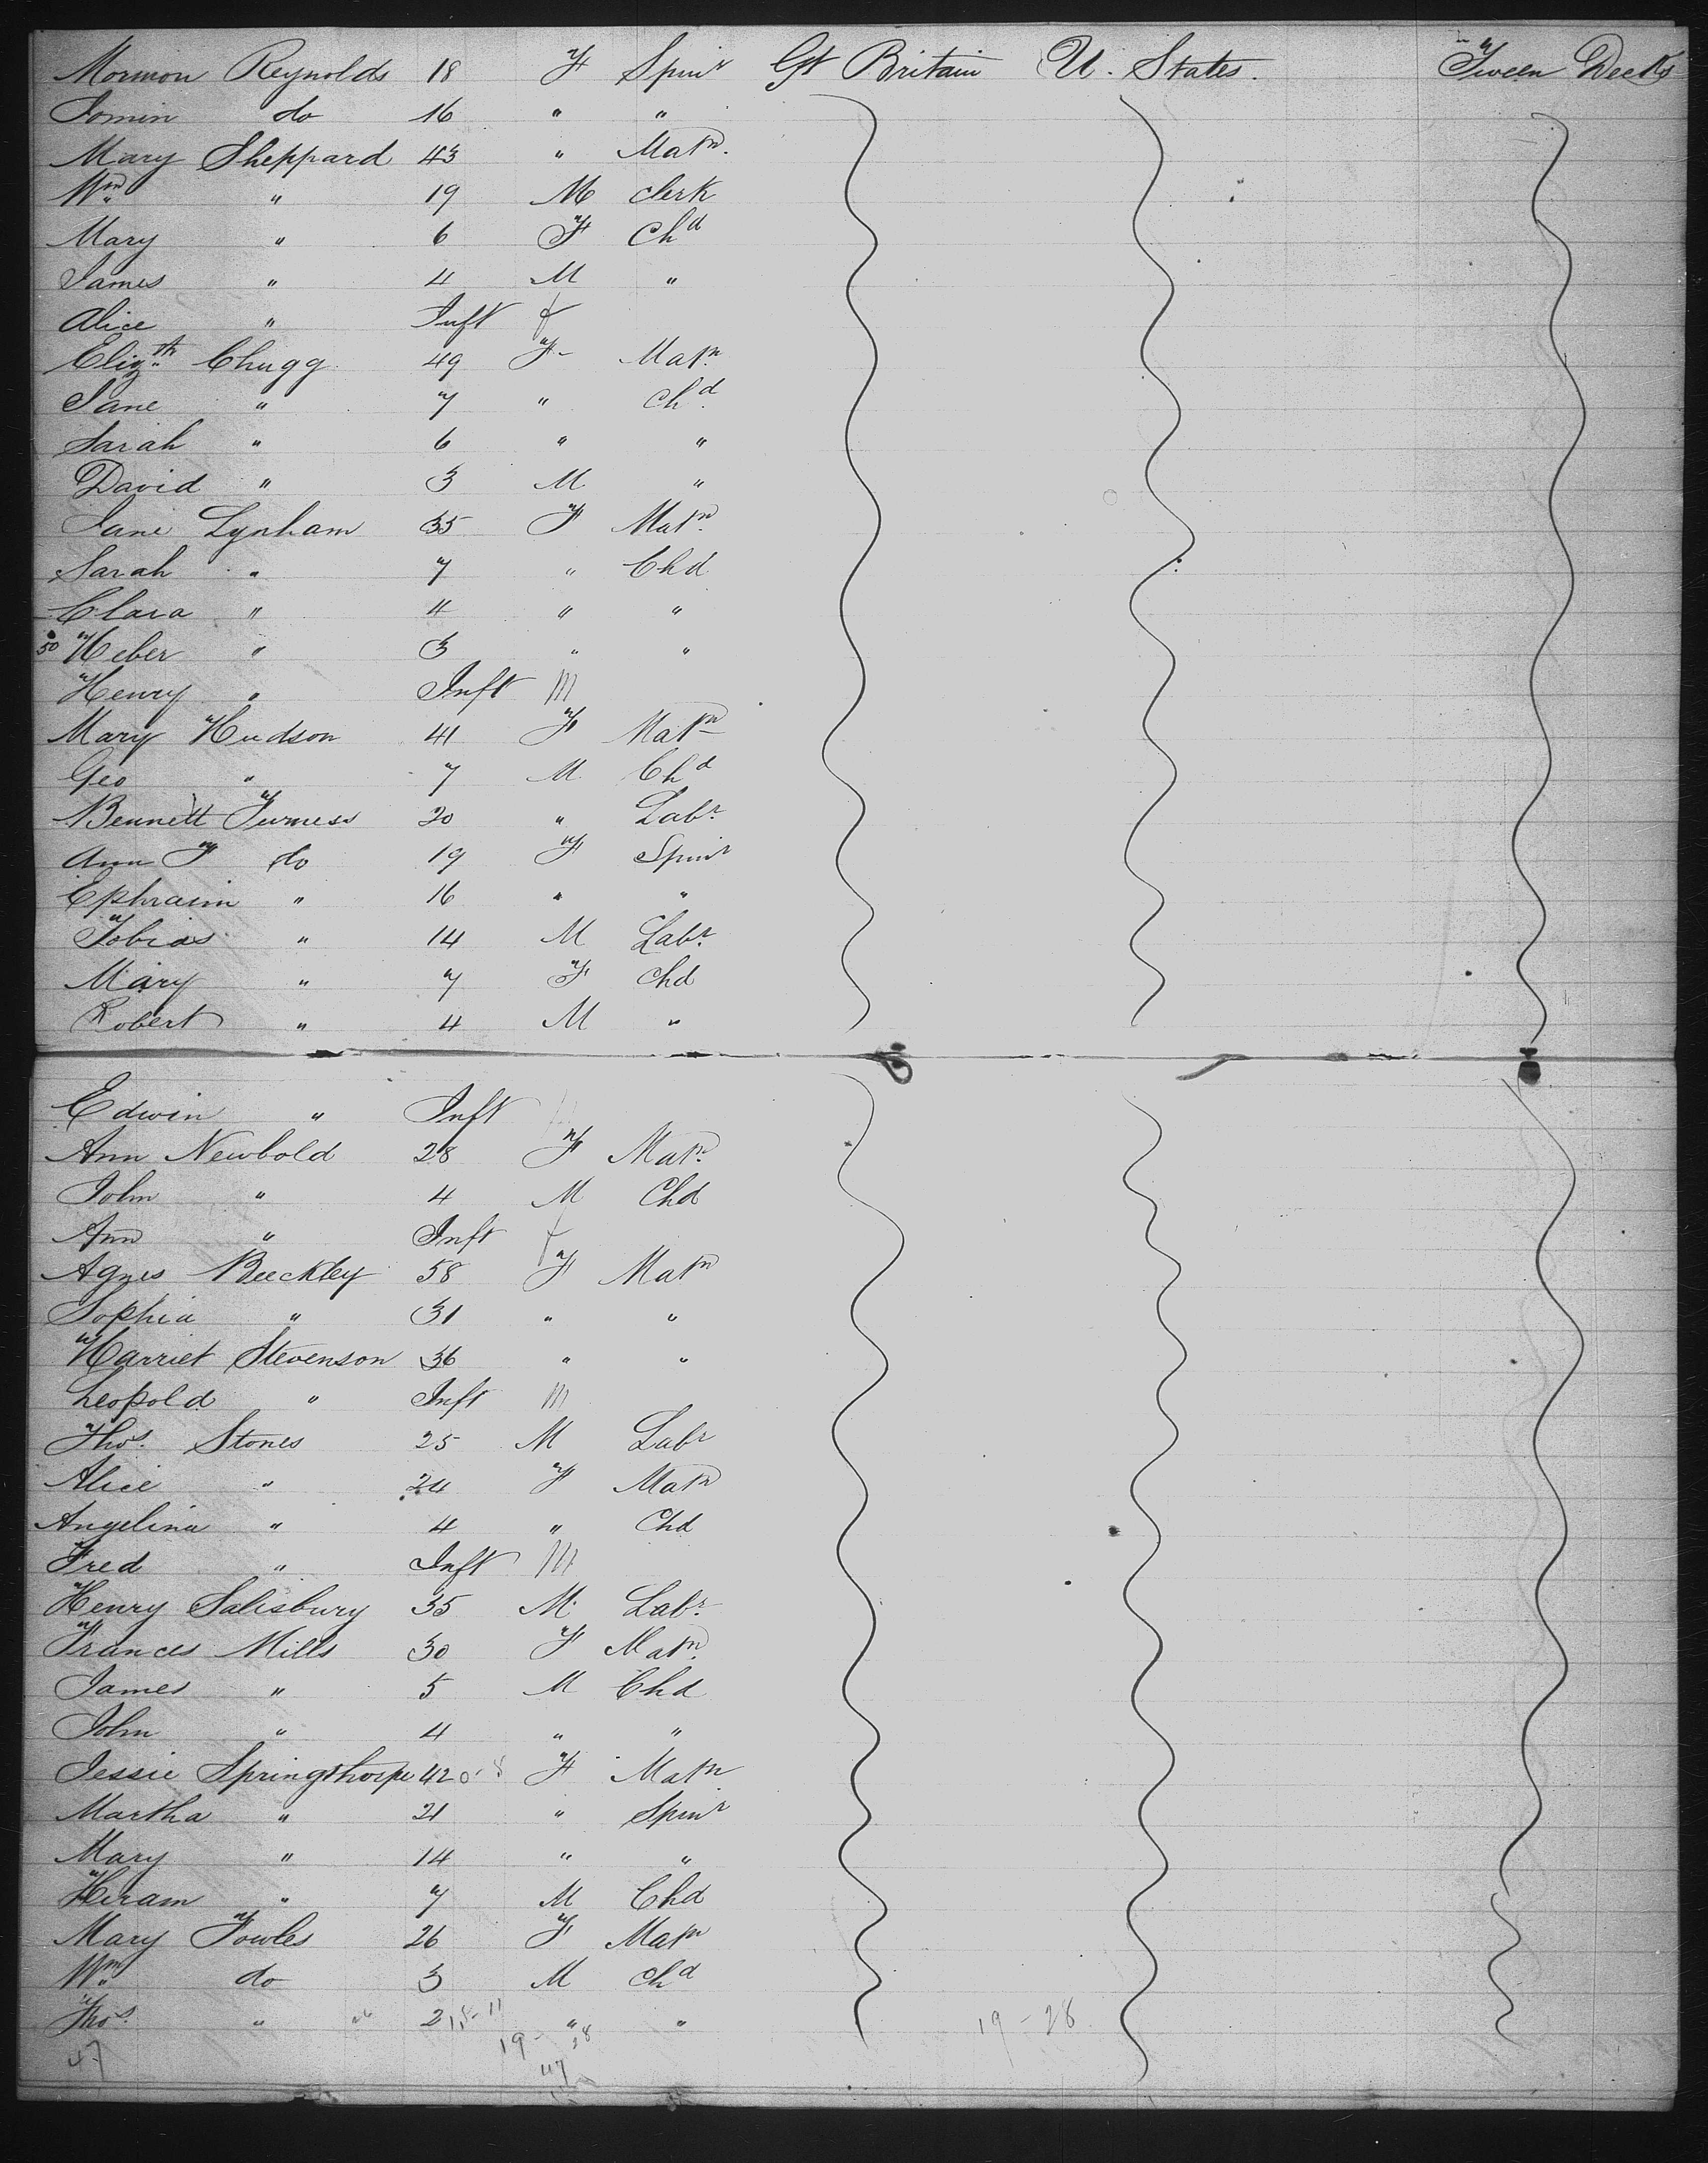 Mormon Reynolds 18 F Spinr Gt Britain U. States. Tween Decks
Tomin do 16 " "
Mary Sheppard 43 " Matn.
Wm " 19 M Clerk
Mary " 6 F Chd
James " 4 M "
Alice " Inft f
Elizth Chugg 49 F- Matn
Jane " 7 " Chd.
Sarah " 6 " "
David " 3 M "
Jane Lynham 35 F Matn
Sarah " 7 " Chd
Clara " 4 " "
50 Heber " 3 " "
Henry " Inft M
Mary Hudson 41 F Matn
Geo " 7 M Chd
Bennett Furness 20 " Labr.
Ann F do 19 F Spinr
Ephraim " 16 " "
Tobias " 14 M Labr.
Mary " 7 F Chd
Robert " 4 M "
Edwin " Inft
Ann Newbold 28 F Matn.
John " 4 M Chd
Ann " Inft f
Agnes Beeckley 58 F Matn
Sophia " 31 " "
Harriet Stevenson 36 " "
Leopold " Inft M
Thos. Stones 25 M Labr
Alice " 24 F Matn
Angelina " 4 " Chd
Fred " Inft M
Henry Salisbury 35 M Labr.
Frances Mills 30 F Matn.
James " 5 M Chd
John " 4 " "
Jessie Springthorpe 42 F Matn
Martha " 21 " Spinr
Mary " 14 " "
Hiram " 7 M Chd
Mary Fowles 26 F Matn
Wm do 3 M Chd
Thos. " 2 " "
19-28 19-28
47 47